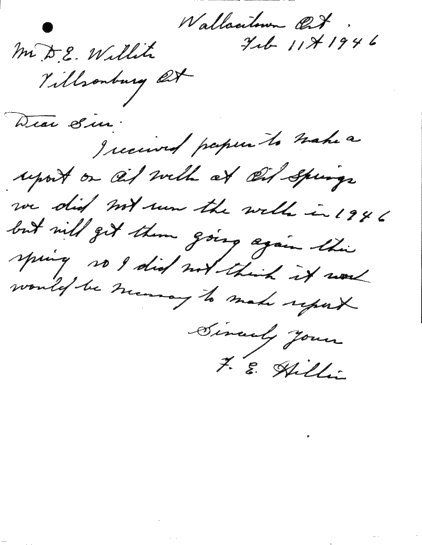 Wallacetown Ont.
Feb 11th 1946
Mr D. E. Willits
Tillsonburg Ont
Dear Sir:
I received papers to make a
report on Oil wells at Oil Springs
we did not run the wells in 1946
but will get them going again this
spring so I did not think it
would be necessary to make report
Sincerely yours
F. E.